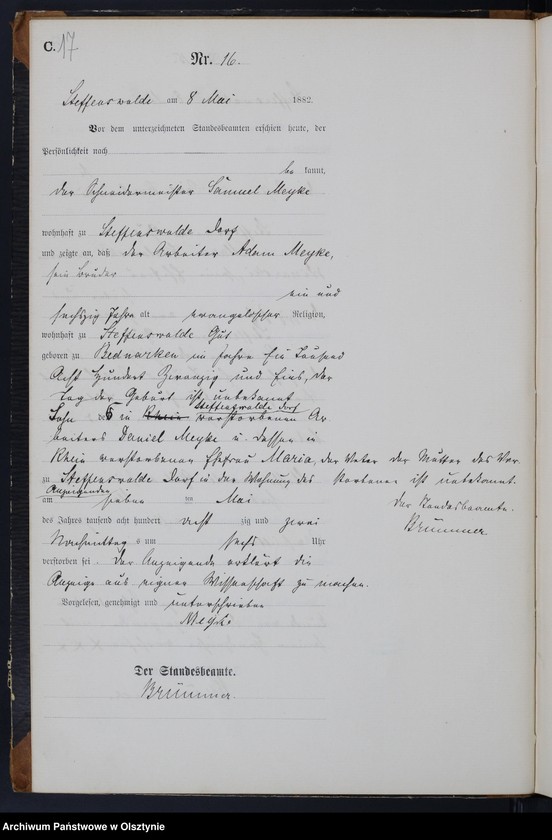 C. 17
Nr. 16.
Steffenswalde am 8 Mai 1882
Vor dem unterzeichneten Standesbeamten erschien heute, der
Persönlichkeit nach
be kannt,
der Schneidermeister Samuel Meyke
wohnhaft zu Steffenswalde Dorf
und zeigte an, daß der Arbeiter Adam Meyke,
sein Bruder
ein und
sechszig Jahre alt evangelischer Religion,
wohnhaft zu Steffenswalde Gut
geboren zu Bednarken im Jahre Ein Tausend
Acht Hundert Zwanzig und Eins, der
Tag der Geburt ist unbekannt
Steffenswalde Dorf
Sohn des in Rhein verstorbenen Ar
beiters Daniel Meyke u dessen in
Rhein verstorbenen Ehefrau Maria, der Vater der Mutter des Ver
storbenen ist unbekannt.
zu Steffenswalde Dorf in der Wohnung des
Anzeigenden
Der Standesbeamte.
am sieben ten Mai
Brümmer
des Jahres tausend acht hundert acht zig und zwei
Nachmittag s um sechs Uhr
verstorben sei. Der Anzeigende erklärt die
Anzeige aus eigener Wissenschaft zu machen.
Vorgelesen, genehmigt und unterschrieben
Meyke
Der Standesbeamte.
Brümmer
Archiwum Państwowe w Olsztynie